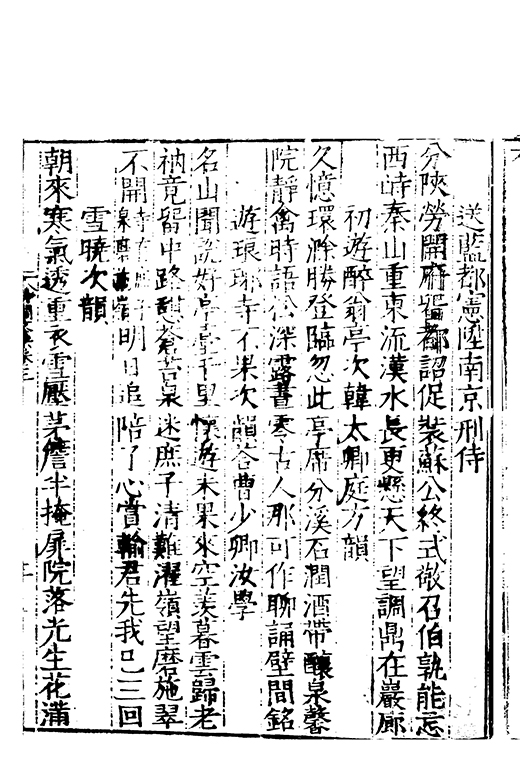 送藍都憲陞南京刑侍
分陝勞開府留都詔促裝蘇公終式敬召伯孰能忘
西峙秦山重東流漢水長更懸天下望調鼎在巖廊
初遊醉翁亭次韓太卿庭方韻
久憶環滁勝登臨忽此亭席分溪石潤酒帶釀泉馨
院靜禽時語公深露晝零古人那可作聊誦壁間銘
遊琅琊寺不果次韻答曹少卿汝學
名山聞說好亭臺千里懷遊未果來空羨暮雲歸老
衲竟留中路迷庶子清難濯嶺望摩施翠
不開明日追陪了心賞輸君先我已三回
雪曉次韻
朝來寒氣透重衣雪壓茅簷半掩扉院落光生花滿